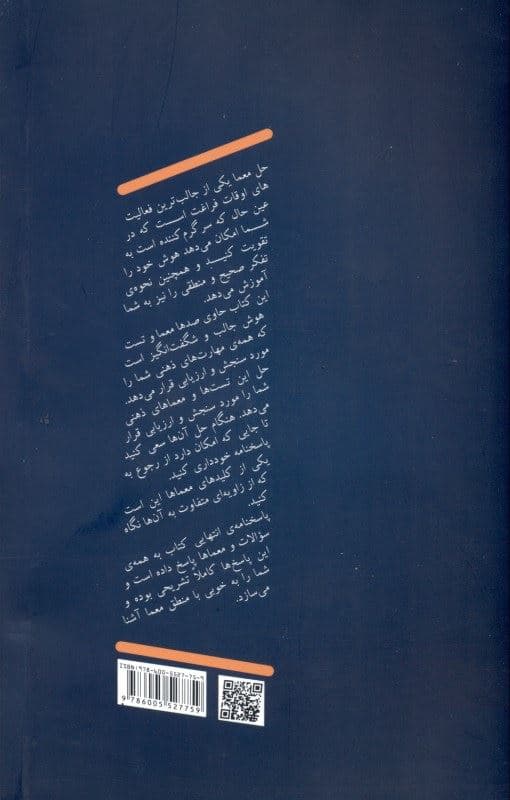 حل معما یکی از جالب‌ترین فعالیت
های اوقات فراغت است که در
عین حال که سرگرم کننده است به
شما امکان می‌دهد هوش خود را
تقویت کنید و همچنین نحوه‌ی
تفکر صحیح و منطقی را نیز به شما
آموزش می‌دهد.
این کتاب حاوی صدها معما و تست
هوش جالب و شگفت‌انگیز است
که همه‌ی مهارت‌های ذهنی شما را
مورد سنجش و ارزیابی قرار می‌دهد.
حل این تست‌ها و معماهای ذهنی
شما را مورد سنجش و ارزیابی قرار
می‌دهد. هنگام حل آن‌ها سعی کنید
تا جایی که امکان دارد از رجوع به
پاسخنامه خودداری کنید.
یکی از کلیدهای معماها این است
که از زاویه‌ای متفاوت به آن‌ها نگاه
کنید.
پاسخنامه‌ی انتهایی کتاب به همه‌ی
سؤالات و معماها پاسخ داده است و
این پاسخ‌ها کاملاً تشریحی بوده و
شما را به خوبی با منطق معما آشنا
می‌سازد.
ISBN:978-600-5527-75-9
9 786005 527759